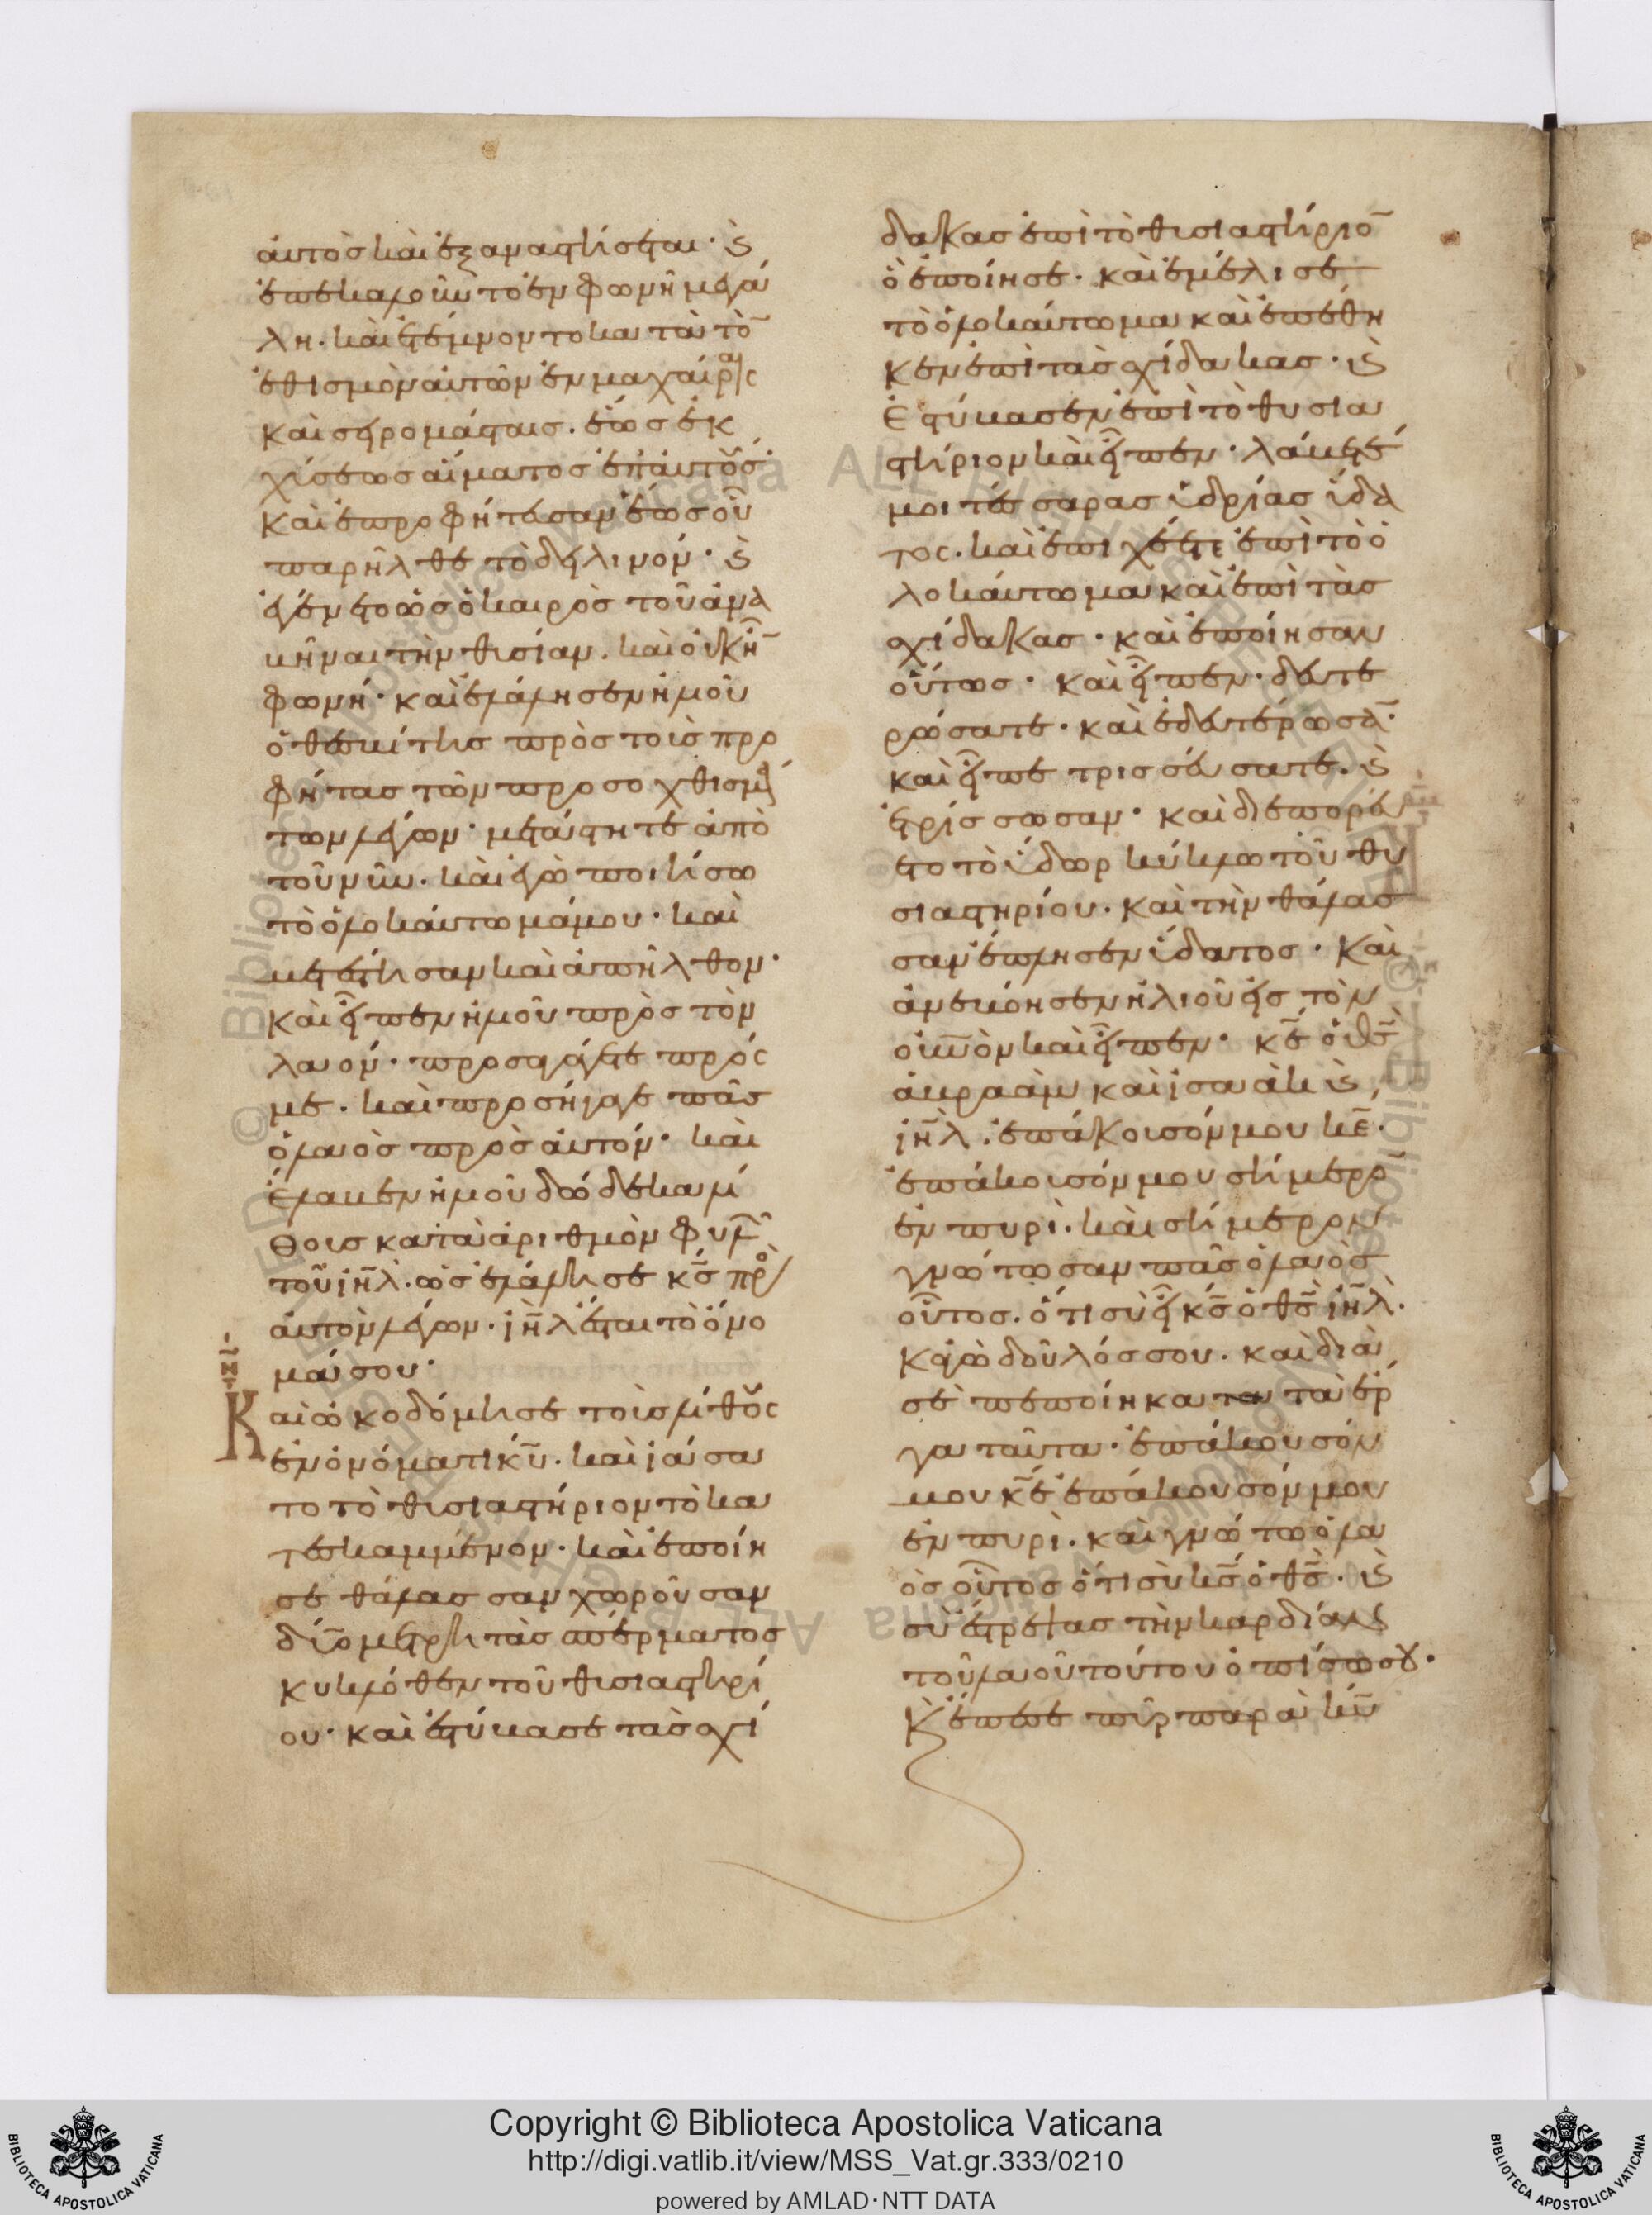 αὐτὸς καὶ ἐξαναστήσεται· ϗ
ἐπεκαλοῦντο ἐν φωνῆ μεγά
λη. καὶ ἐτέμνοντο κατὰ τὸ̄
ἐθισμὸν αὐτῶν ἐν μαχαίραις
καὶ σειρομάσταις. ἕως ἐκ
χύσεως αἵματος ἐπ' αὐτούς·
καὶ ἐπροφήτευσαν ἕως οὗ
παρῆλθε τὸ δειλινόν· ϗ
ἐγένετο ὡς ὁ καιρὸς τοῦ ἀνα
βῆναι τὴν θυσίαν. καὶ οὐκ ἦ̄
φωνή· καὶ ἐλάλησεν ἠλιοῦ
ὁ θεσβίτης πρὸς τοὺς προ
φήτας τῶν προσοχθισμά
των λέγων· μετάστητε ἀπὸ
τοῦ νῦν. καὶ ἐγὼ ποιήσω
τὸ ὁλοκαύτωμά μου· καὶ
μετέστησαν καὶ ἀπῆλθον·
καὶ εἶπεν ἠλιοῦ πρὸς τὸν
λαόν· προσαγάγετε πρός
με. καὶ προσήγαγε πᾶς
ὁ λαὸς πρὸς αὐτόν· καὶ
ἔλαβεν ἠλιοῦ δώδεκα λί
θους κατὰ ἀριθμὸν φυλῶ̄
τοῦ ἰη̄λ. ὡς ἐλάλησε κ̄ς πρὸς
αὐτὸν λέγων· ἰη̄λ ἔσται τὸ ὄνο
μά σου·
Καὶ ὠκοδόμησε τοὺς λίθους
ἐν ὀνόματι κ̄υ. καὶ ἰάσα
το τὸ θυσιαστήριον τὸ κα
τεσκαμμένον· καὶ ἐποίη
σε θάλασσαν χωροῦσαν
δύο μετρητὰς σπέρματος
κυκλόθεν τοῦ θυσιαστηρί
ου· καὶ ἐστύβασε τὰς σχί
δακας ἐπὶ τὸ θυσιαστήριο̄
ὃ ἐποίησε· καὶ ἐμέλισε
τὸ ὁλοκαύτωμα καὶ ἐπέθη
κεν ἐπὶ τὰς σχίδακας· ϗ
ἐστύβασεν ἐπὶ τὸ θυσια
στήριον καὶ εἶπεν· λάβετέ
μοι τέσσαρας ὑδρίας ὕδα
τος. καὶ ἐπιχέετε ἐπὶ τὸ ὁ
λοκαύτωμα καὶ ἐπὶ τὰς
σχίδακας· καὶ ἐποίησαν
οὕτως· καὶ εἶπεν· δευτε
ρώσατε· καὶ ἐδευτέρωσᾱ·
καὶ εἶπε τρισσεύσατε. ϗ
ἐτρίσσωσαν· καὶ διεπορεύ
ετο τὸ ὕδωρ κύκλω τοῦ θυ
σιαστηρίου. καὶ τὴν θάλασ
σαν ἔπλησεν ὕδατος· καὶ
ἀνεβόησεν ἠλιοῦ εἰς τὸν
οὐ̄νὸν καὶ εἶπεν· κ̄ε ὁ θ̄ς
ἀβραὰμ καὶ ἰσαὰκ ϗ
ἰη̄λ. ἐπάκουσόν μου κ̄ε·
ἐπάκουσόν μου σήμερο̄
ἐν πυρὶ. καὶ σήμερον
γνώτωσαν πᾶς ὁ λαὸς
οὗτος. ὅτι σὺ εἶ κ̄ς ὁ θ̄ς ἰη̄λ.
κἀγὼ δοῦλός σου. καὶ διὰ
σὲ πεποίηκα τὰ ἔρ
γα ταῦτα· ἐπάκουσόν
μου κ̄ε ἐπάκουσόν μου
ἐν πυρὶ. καὶ γνώτω ὁ λα
ὸς οὗτος ὅτι σὺ κ̄ς ὁ θ̄ς. ϗ
σὺ ἔστρεψας τὴν καρδίαν
τοῦ λαοῦ τούτου ὀπίσω σου·
Κ ἔπεσε πῦρ παρὰ κ̄υ
Copyright © Biblioteca Apostolica Vaticana
http://digi.vatlib.it/view/MSS_Vat.gr.333/0210
powered by AMLAD·NTT DATA
BIBLIOTECA APOSTOLICA VATICANA
BIBLIOTECA APOSTOLICA VATICANA